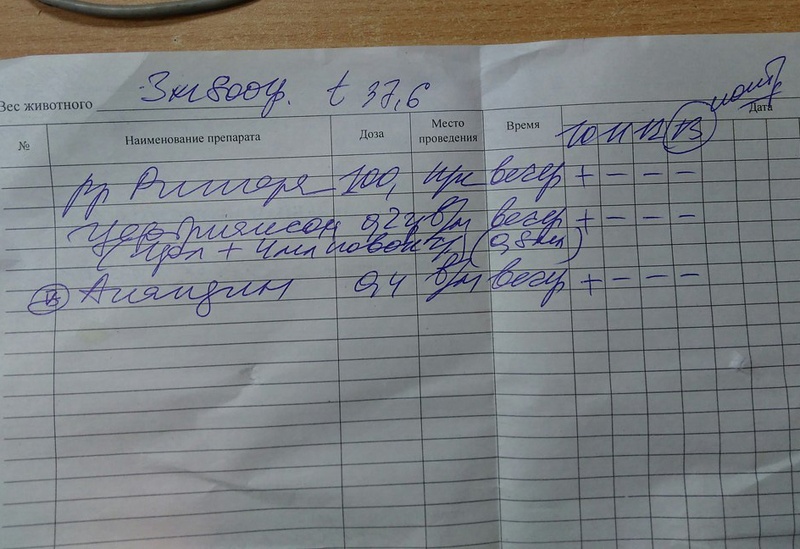 Вес животного 3кг800гр. t 37,6
№ Наименование препарата Доза Место проведения Время Дата
10 11 12 13
рр Рингера 100, п/к вечер + - - -
Цефтриаксон 0,24 в/м вечер + - - -
1фл + 4мл новок (0,8мл)
Анандин 0,4 в/м вечер + - - -